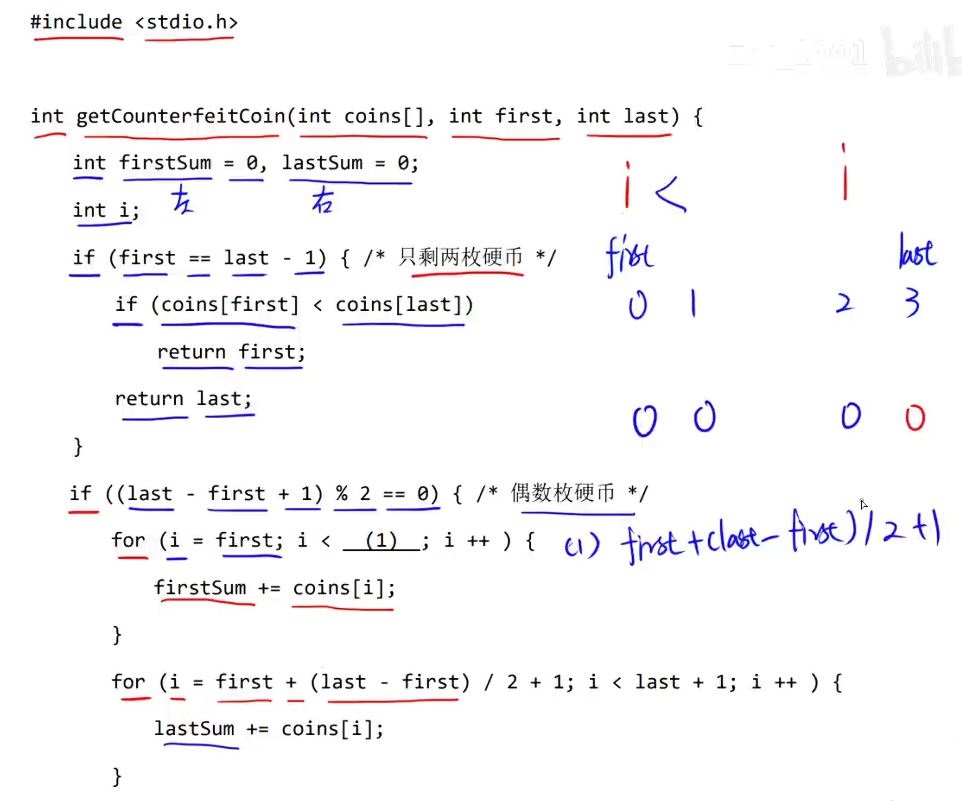 #include <stdio.h>
bilibili
int getCounterfeitCoin(int coins[], int first, int last) {
int firstSum = 0, lastSum = 0;
左 右
i < i
int i;
if (first == last - 1) { /* 只剩两枚硬币 */
first last
if (coins[first] < coins[last])
0 1 2 3
return first;
return last;
0 0 0 0
}
if ((last - first + 1) % 2 == 0) { /* 偶数枚硬币 */
for (i = first; i < (1) ; i ++ ) {
(1) first+(last-first)/2+1
firstSum += coins[i];
}
for (i = first + (last - first) / 2 + 1; i < last + 1; i ++ ) {
lastSum += coins[i];
}